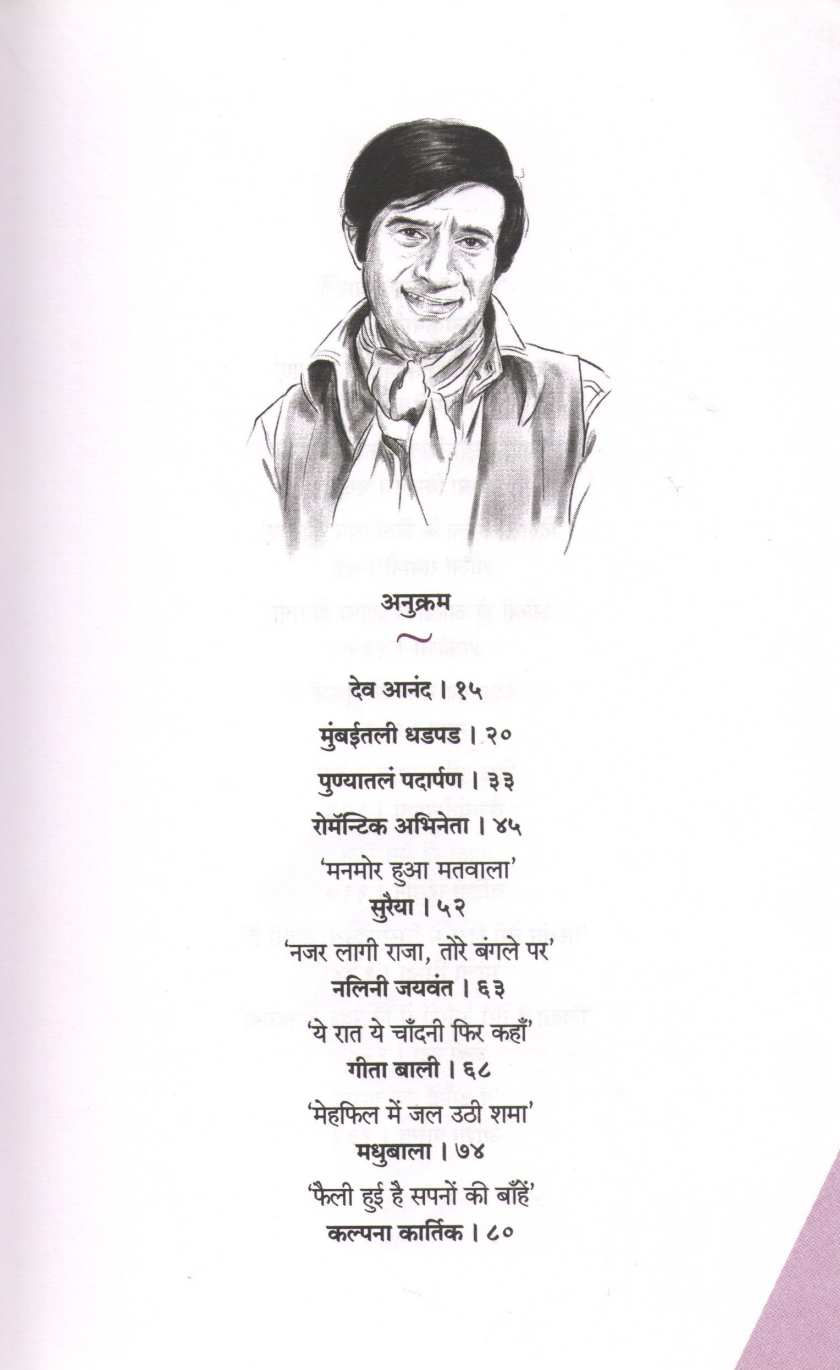 अनुक्रम
देव आनंद । १५
मुंबईतली धडपड । २०
पुण्यातलं पदार्पण । ३३
रोमॅन्टिक अभिनेता । ४५
‘मनमोर हुआ मतवाला’
सुरैया । ५२
‘नजर लागी राजा, तोरे बंगले पर’
नलिनी जयवंत । ६३
‘ये रात ये चाँदनी फिर कहाँ’
गीता बाली । ६८
‘मेहफिल में जल उठी शमा’
मधुबाला । ७४
‘फैली हुई है सपनों की बाँहें’
कल्पना कार्तिक । ८०